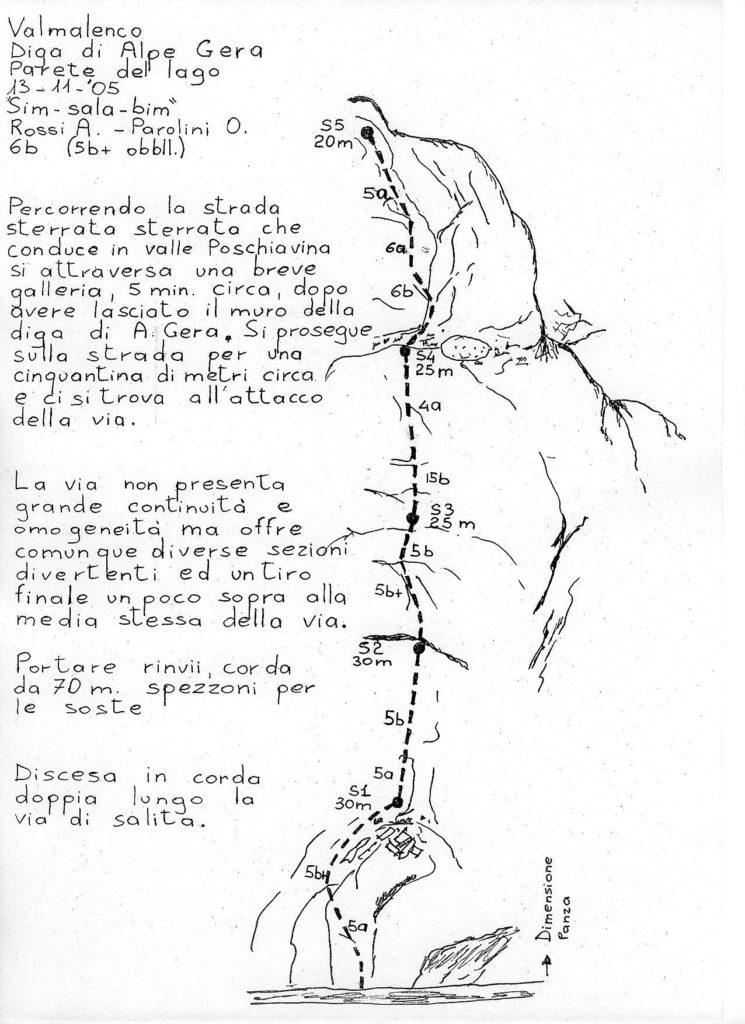 Valmalenco
Diga di Alpe Gera
Parete del lago
13-11-'05
"Sim-sala-bim"
Rossi A. - Parolini O.
6b (5b+ obbll.)
Percorrendo la strada
sterrata sterrata che
conduce in valle Poschiavina
si attraversa una breve
galleria, 5 min. circa, dopo
avere lasciato il muro della
diga di A. Gera. Si prosegue
sulla strada per una
cinquantina di metri circa
e ci si trova all'attacco
della via.
La via non presenta
grande continuità e
omogeneità ma offre
comunque diverse sezioni
divertenti ed un tiro
finale un poco sopra alla
media stessa della via.
Portare rinvii, corda
da 70 m. spezzoni per
le soste
Discesa in corda
doppia lungo la
via di salita.
S5
20m
5a
6a
6b
S4
25 m
4a
15b
S3
25 m
5b
5b+
S2
30m
5b
5a
S1
30m
5b+
5a
Dimensione
Panza